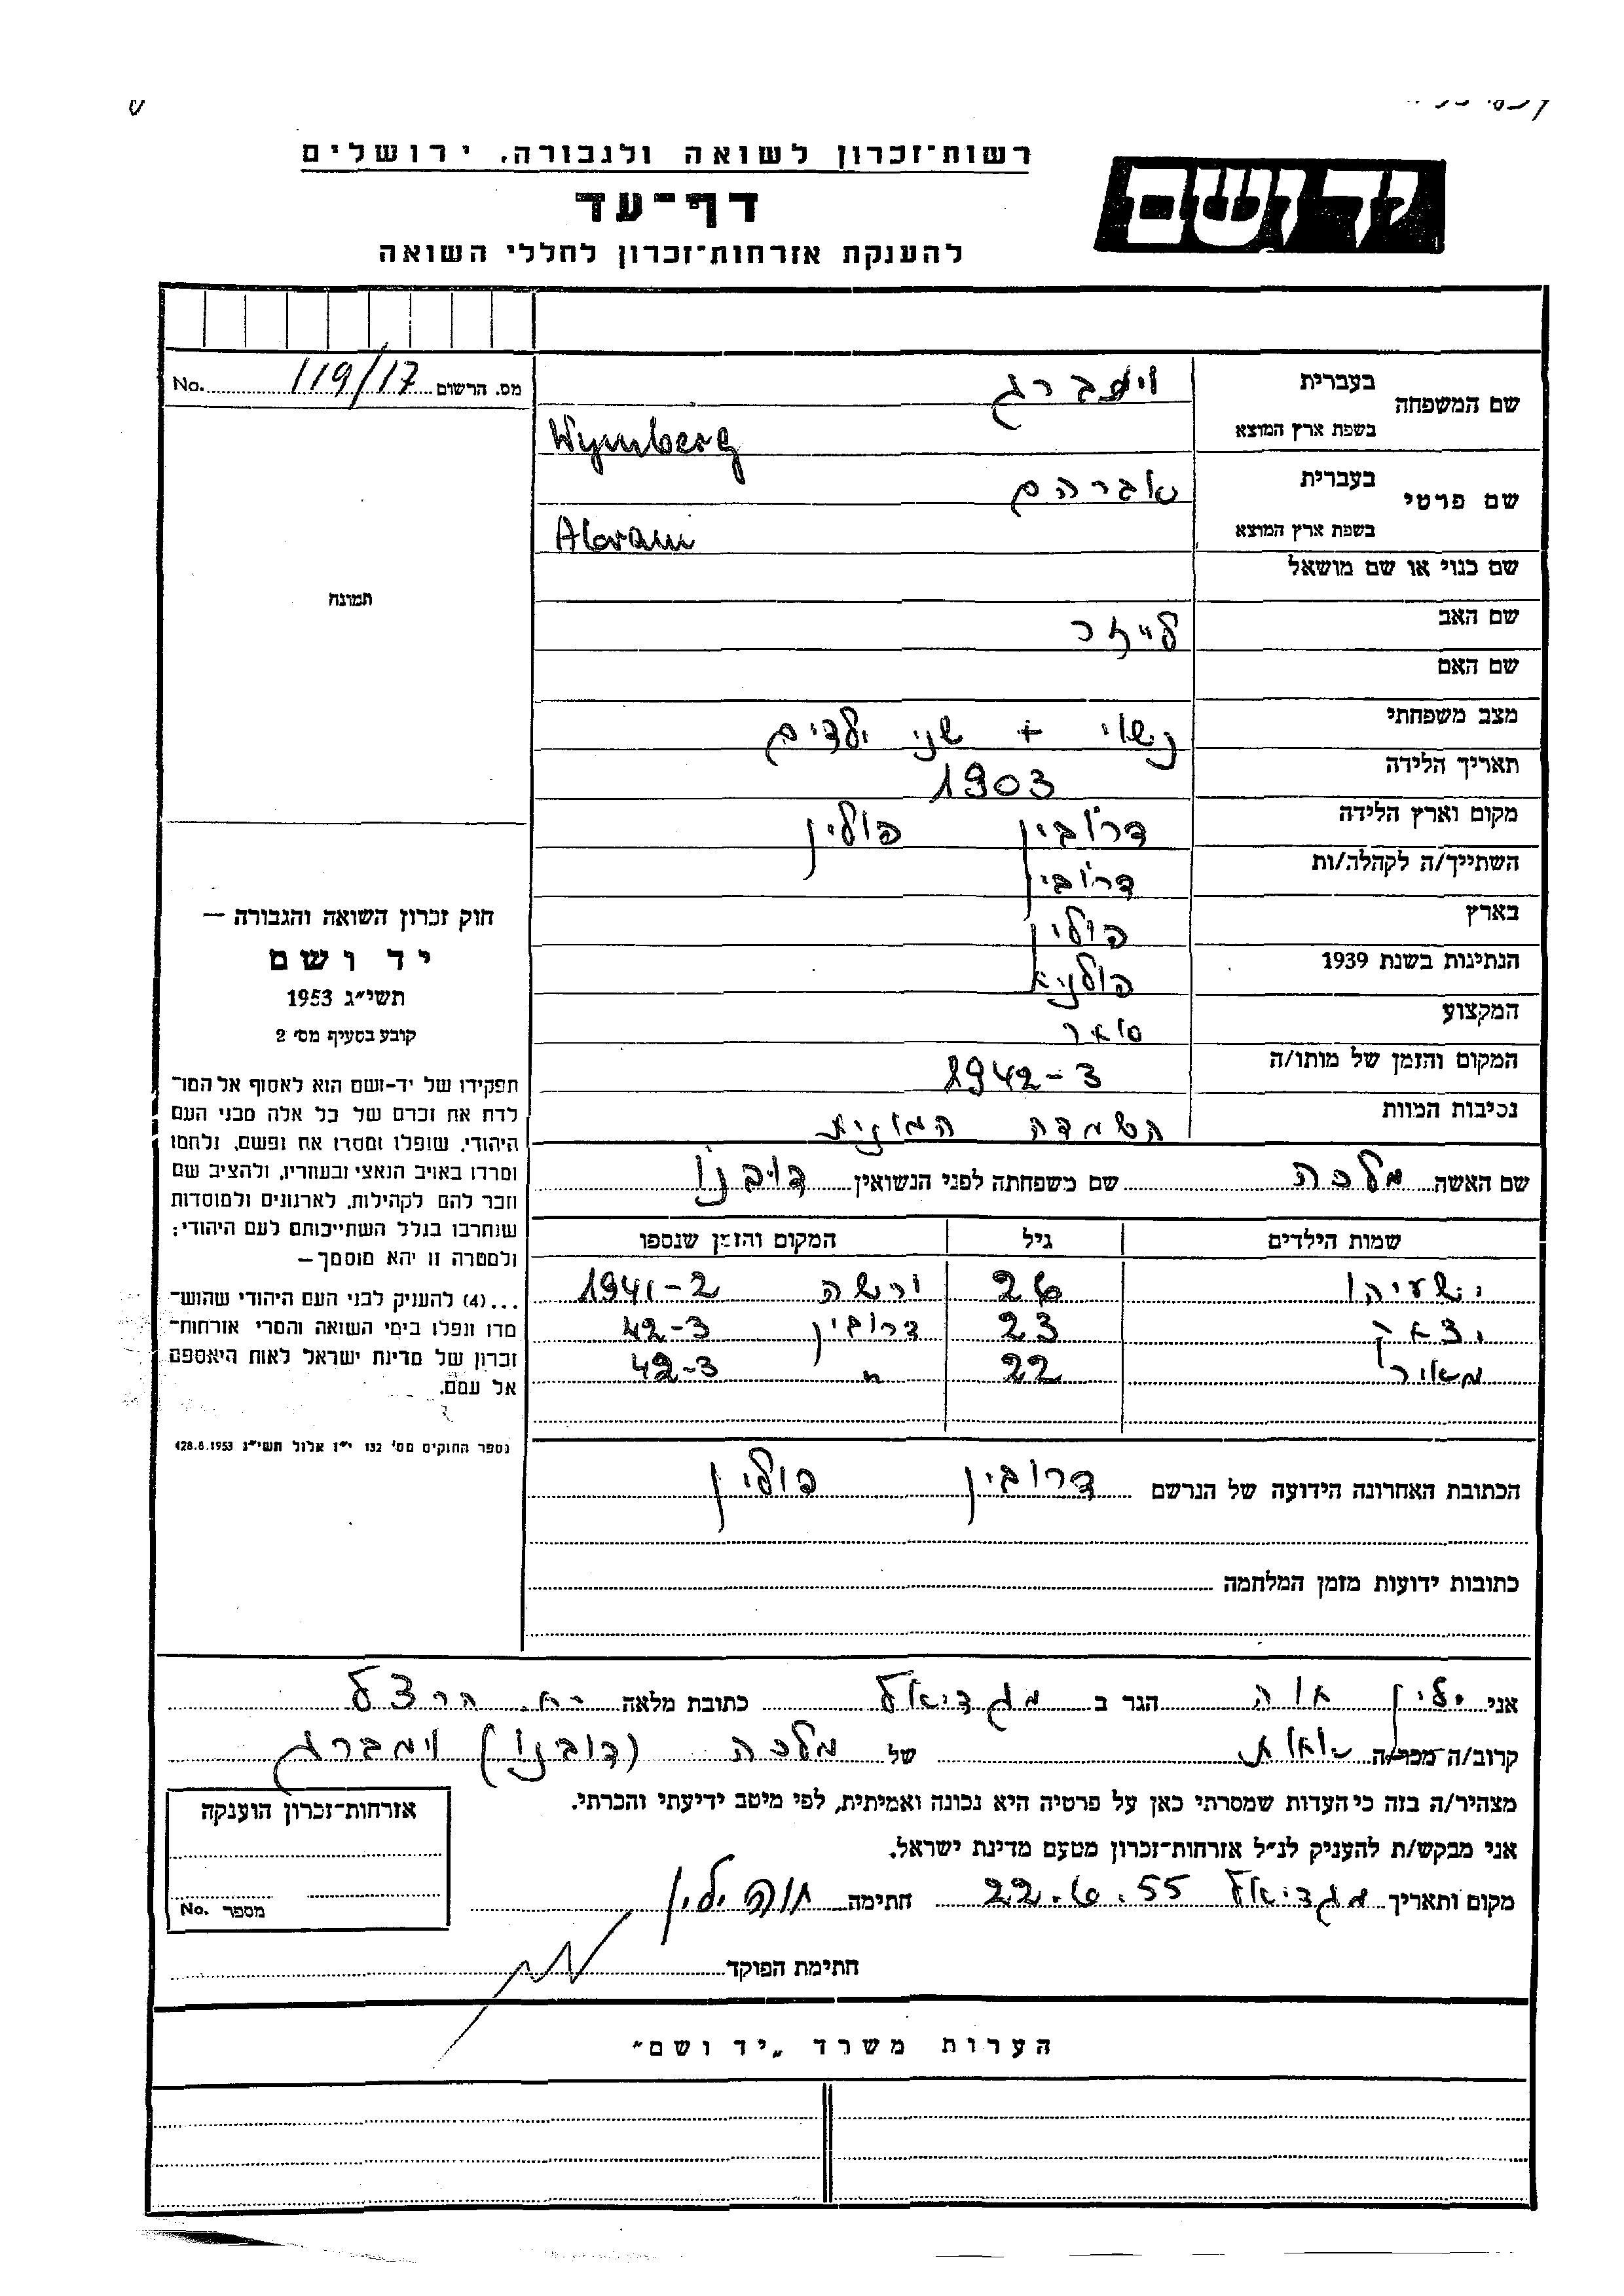 רשות־זכרון לשואה ולגבורה, ירושלים
דף־עד
להענקת אזרחות־זכרון לחללי השואה
יד ושם
No. 119/17 מס. הרשום
שם המשפחה
בעברית ויימברג
בשפת ארץ המוצא Wymberg
שם פרטי
בעברית אברהם
בשפת ארץ המוצא Abram
שם כנוי או שם מושאל
שם האב לייזר
שם האם
מצב משפחתי נשוי + שני ילדים
תאריך הלידה 1903
מקום וארץ הלידה דרובין פולין
השתייך/ה לקהלה/ות דרובין
בארץ פולין
הנתינות בשנת 1939 פולניא
המקצוע סוחר
המקום והזמן של מותו/ה 1942-3
נסיבות המוות השמדה המונית
שם האשה מלכה שם משפחתה לפני הנשואין דובנו
שמות הילדים גיל המקום והזמן שנספו
ישעיהו 26 ורשה 1941-2
יצחק 23 דרובין 42-3
מאיר 22 " 42-3
הכתובת האחרונה הידועה של הנרשם דרובין פולין
כתובות ידועות מזמן המלחמה
תמונה
חוק זכרון השואה והגבורה —
יד ושם
תשי״ג 1953
קובע בסעיף מס׳ 2
תפקידו של יד-ושם הוא לאסוף אל המו־
לדת את זכרם של כל אלה מבני העם
היהודי, שנפלו ומסרו את נפשם, נלחמו
ומרדו באויב הנאצי ובעוזריו, ולהציב שם
וזכר להם לקהילות, לארגונים ולמוסדות
שנחרבו בגלל השתייכותם לעם היהודי;
ולמטרה זו יהא מוסמך—
...(4) להעניק לבני העם היהודי שהוש־
מדו ונפלו בימי השואה והמרי אזרחות־
זכרון של מדינת ישראל לאות היאספם
אל עמם.
(ספר החוקים מס׳ 132 י״ז אלול תשי״ג 28.8.1953)
אני ילין חוה הגר ב מגדיאל כתובת מלאה רח. הרצל
קרוב/ה מכר/ה אחות של מלכה (דובנו) וימברג
מצהיר/ה בזה כי העדות שמסרתי כאן על פרטיה היא נכונה ואמיתית, לפי מיטב ידיעתי והכרתי.
אני מבקש/ת להעניק לנ״ל אזרחות־זכרון מטעם מדינת ישראל.
מקום ותאריך מגדיאל 22.6.55 חתימה חוה ילין
חתימת הפוקד
אזרחות־זכרון הוענקה
No. מספר
הערות משרד „יד ושם״